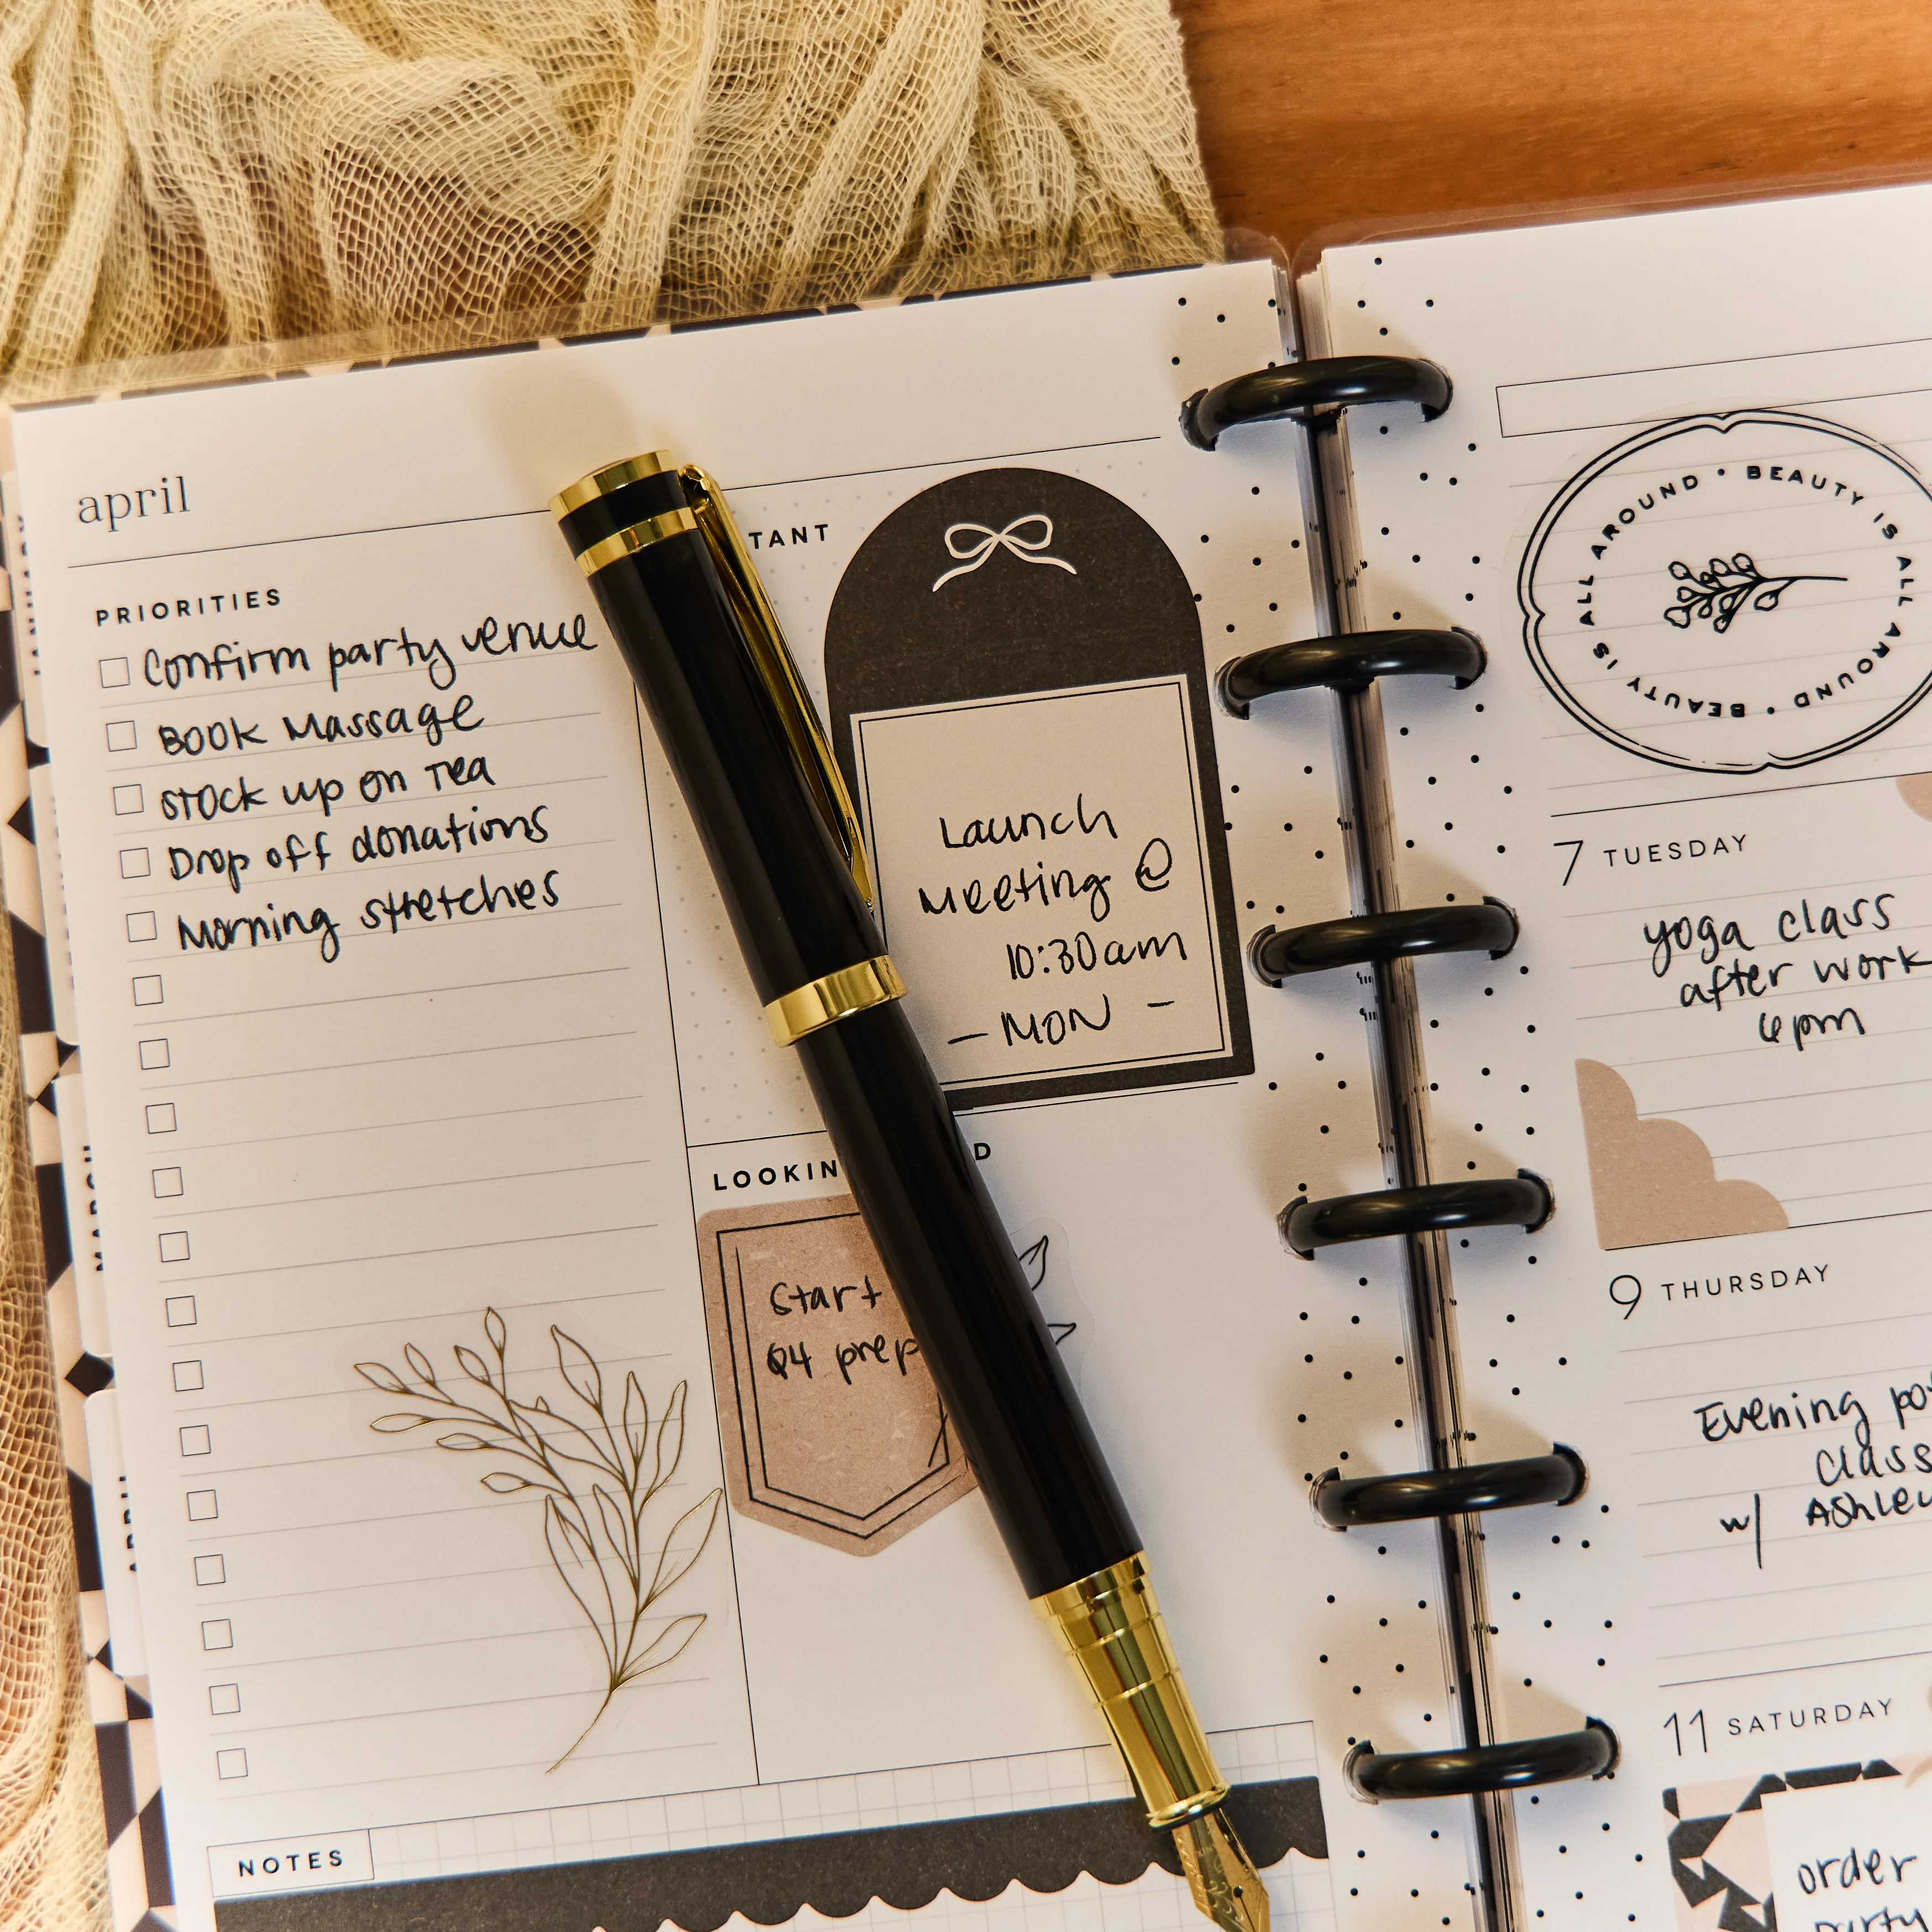 april
PRIORITIES
Confirm party venue
Book Massage
Stock up on Tea
Drop off donations
Morning stretches
TANT
Launch
Meeting @
10:30am
- MON -
LOOKIN D
Start
Q4 prep
NOTES
BEAUTY IS ALL AROUND • BEAUTY IS ALL AROUND •
7 TUESDAY
yoga class
after work
6pm
9 THURSDAY
Evening
Class
w/ Ashley
11 SATURDAY
order
party
JANUARY
MARCH
APRIL